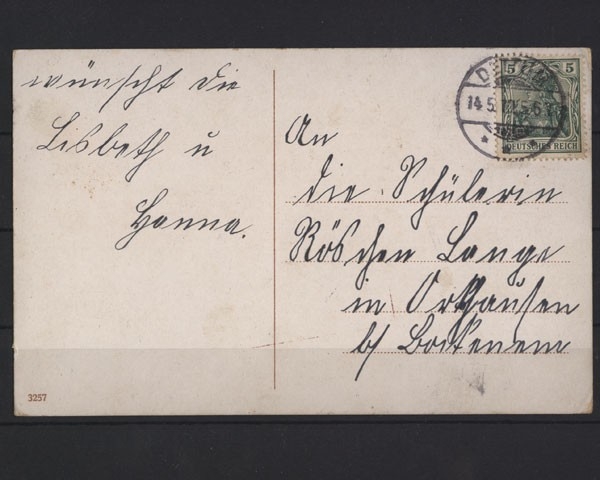 wünscht die
Lisbeth u
Hanna.
An
die Schülerin
Röschen Lange
in Orthausen
b/ Bockenem
5 5
DEUTSCHES REICH
3257